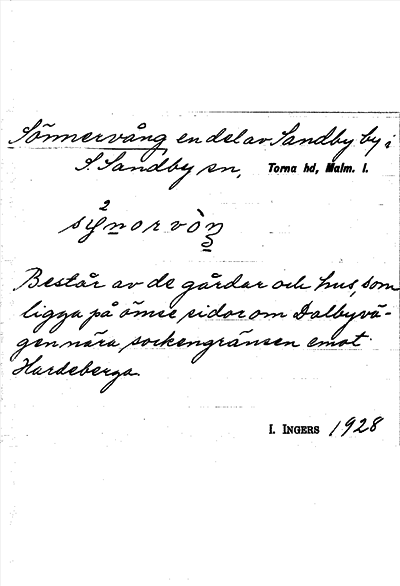 Sönnervång, en del av Sandby by i
S. Sandby sn, Torna hd, Malm. l.
Består av de gårdar och hus, som
ligga på ömse sidor om Dalbyvä-
gen nära sockengränsen emot
Hardeberga.
I. INGERS 1928